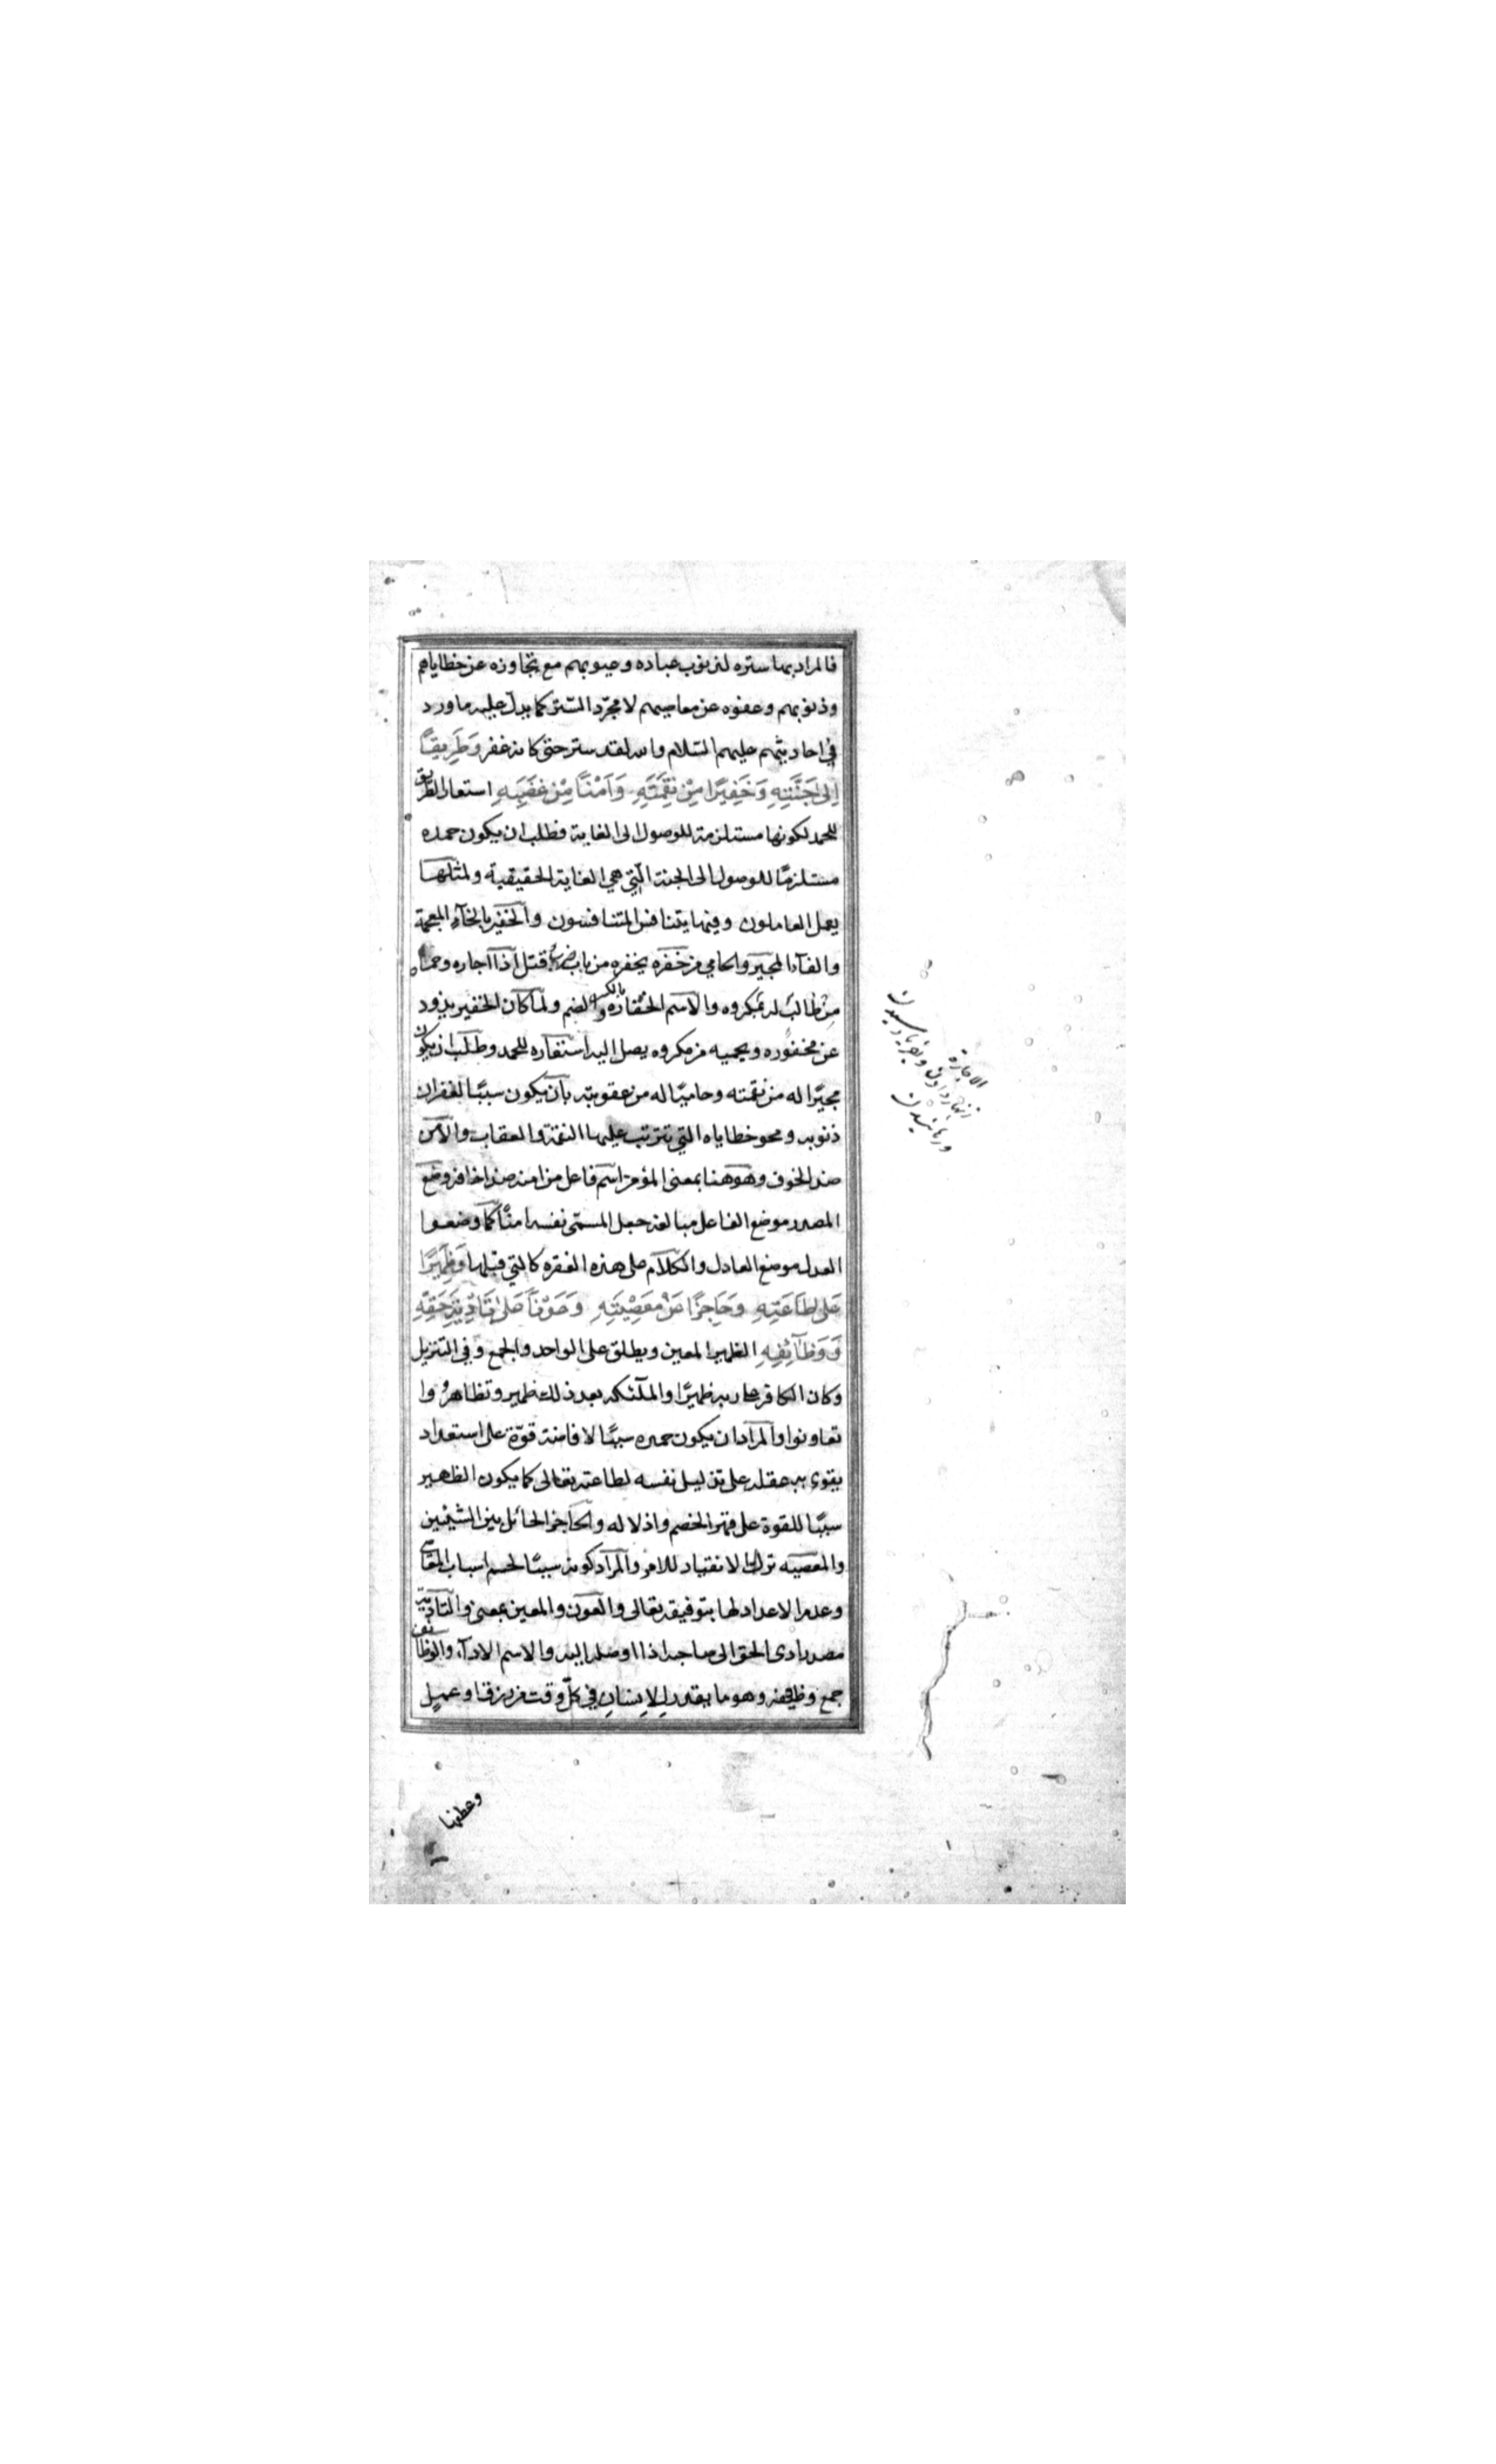 فالمراد بها ستره لذنوب عباده وعيوبهم مع تجاوزه عن خطاياهم
وذنوبهم وعفوه عن معاصيهم لا مجرّد الستر كما يدلّ عليه ما ورد
في احاديثهم عليهم السّلام والله لقد ستر حتى كانه غفر وَطَرِيقًا
اِلى جَنَّتِهِ وَخَفِيرًا مِنْ نَقِمَتِهِ وَاَمْنًا مِنْ غَضَبِهِ استعار الطريق
للحمد لكونها مستلزمة للوصول الى الغاية فطلب ان يكون حمده
مستلزمًا للوصول الى الجنة الّتي هي الغاية الحقيقية ولمثلها
يعمل العاملون وفيها يتنافس المتنافسون والخفير بالخآء المعجمة
والفآء المجير والحامي من خفره يخفره من باب قتل اذا اجاره وحماه
من طالب له بمكروه والاسم الخفارة بالكسر والضم ولما كان الخفير يذود
عن مخفوره ويحميه من مكروه يصل اليه استعاره للحمد وطلب ان يكون
مجيرًا له من نقمته وحاميًا له من عقوبته بان يكون سببًا لغفران
ذنوبه ومحو خطاياه التي تترتب عليها النقمة والعقاب والامن
ضد الخوف وهو هنا بمعنى المؤمن اسم فاعل من امنه ضد اخافه وضع
المصدر موضع الفاعل مبالغة جعل المسمى نفسه امنًا كما وضعوا
العدل موضع العادل والكلام على هذه الفقره كالتي قبلها وَظَهِيرًا
عَلى طَاعَتِهِ وَحَاجِزًا عَنْ مَعْصِيَتِهِ وَعَوْنًا عَلى تَأْدِيَةِ حَقِّهِ
وَوَظَآئِفِهِ الظهير المعين ويطلق على الواحد والجمع وفي التنزيل
وكان الكافر على ربه ظهيرًا والملآئكة بعد ذلك ظهير وتظاهروا
تعاونوا والمراد ان يكون حمده سببًا لافاضة قوّة على استعداد
يقوى به عقله على تذليل نفسه لطاعته تعالى كما يكون الظهير
سببًا للقوة على قهر الخصم واذلاله والحاجز الحائل بين الشيئين
والمعصيه ترك الانقياد للامر والمراد كونه سببًا لحسم اسباب المعاصي
وعدم الاعداد لها بتوفيقه تعالى والعون والمعين بمعنى والتادية
مصدر ادى الحق الى صاحبه اذا اوصله اليه والاسم الادآء والوظائف
جمع وظيفة وهو ما يقدر للانسان في كلّ وقت من رزق او عمل
وعطفها
الاجارة
زنهار دادن و بفرياد رسيدن
ورهانيدن